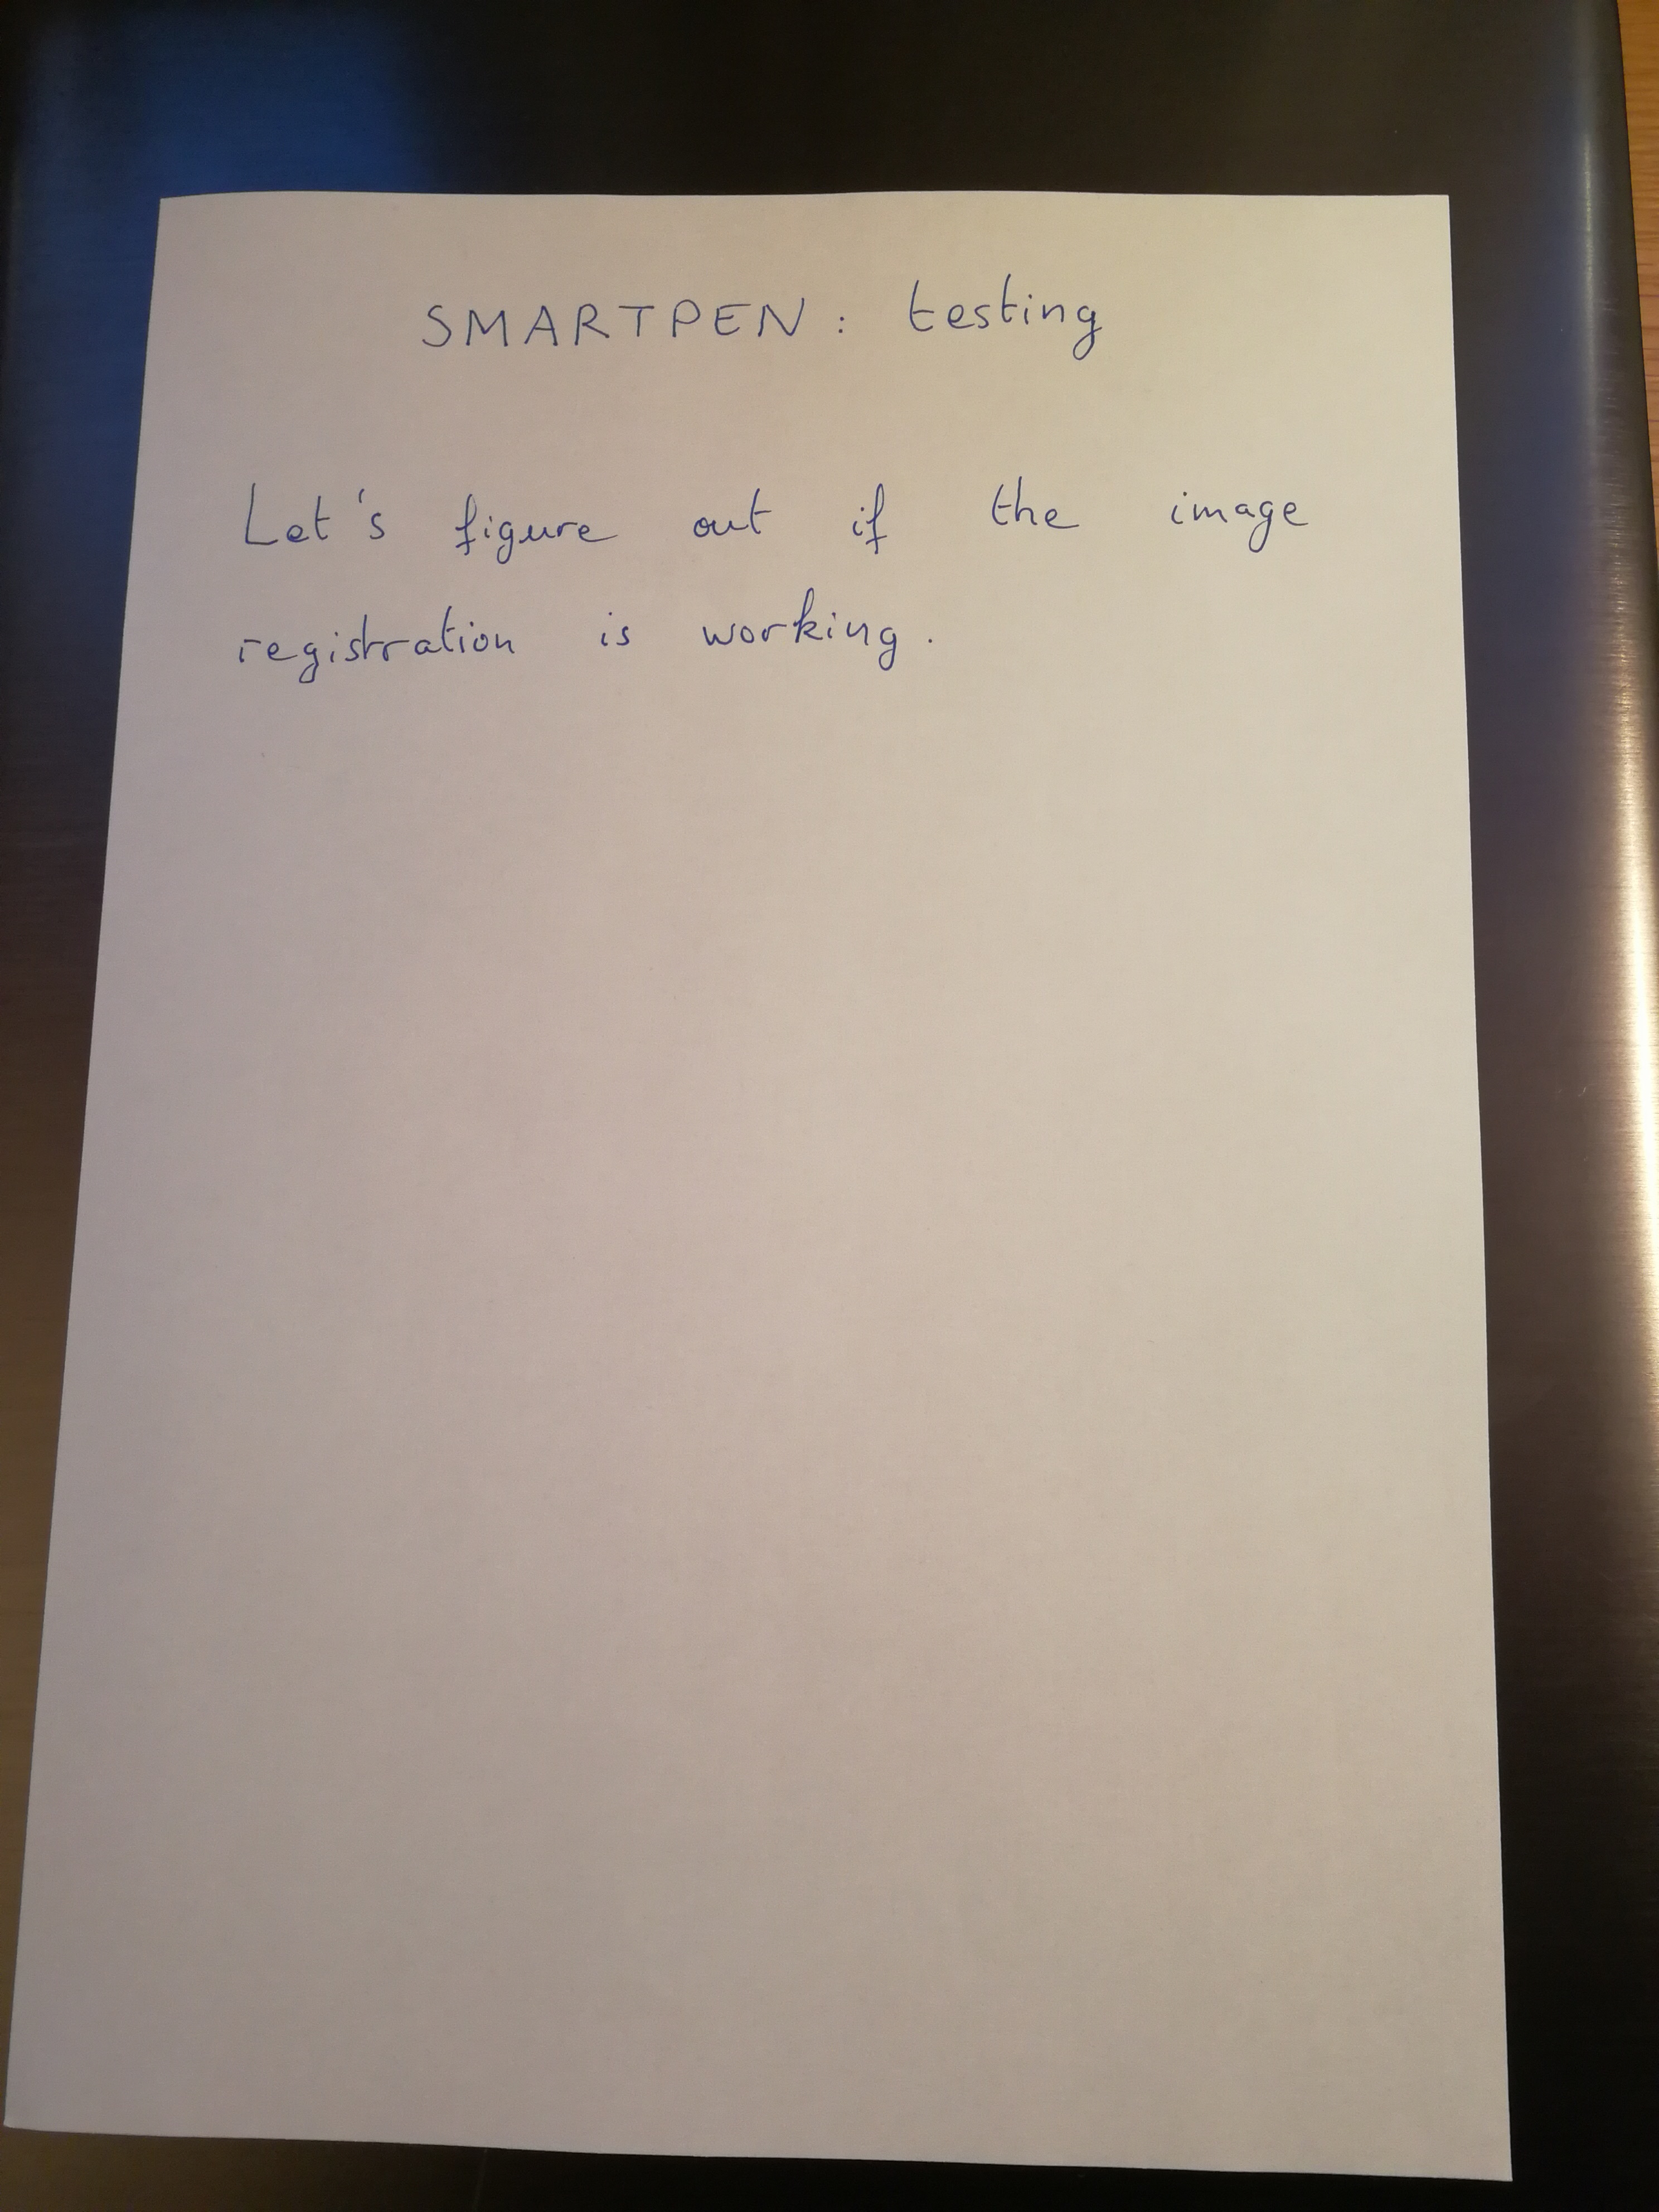 SMARTPEN: testing
Let's figure out if the image
registration is working.